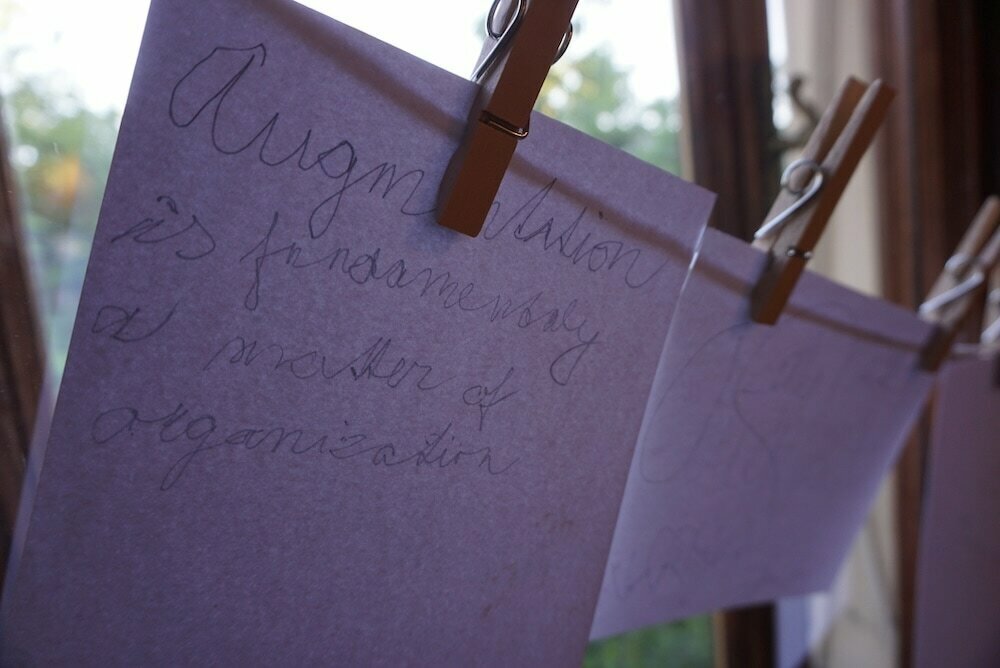 Augmentation
is fundamentaly
a matter of
organization